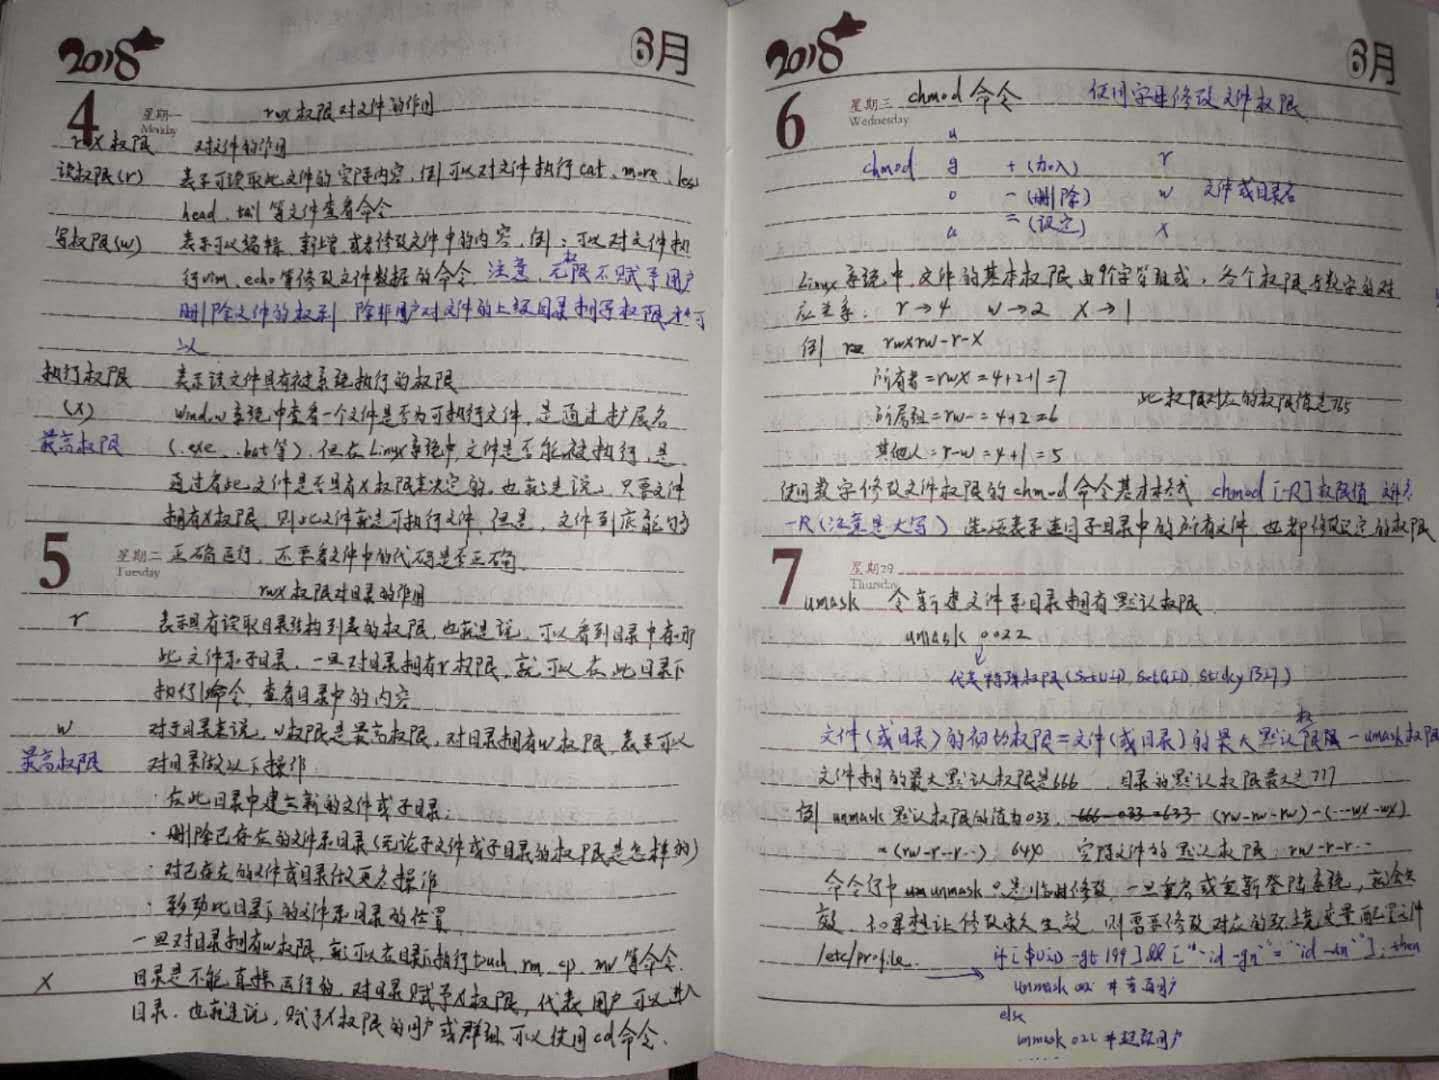 2018 6月
4 星期一 Monday rwx权限对文件的作用
rwx权限 对文件的作用
读权限(r) 表示可读取此文件的实际内容,例可以对文件执行cat、more、less
head、tail等文件查看命令
写权限(w) 表示可以编辑、新增、或者修改文件中的内容,例:可以对文件执
行vim、echo等修改文件数据的命令.注意,无权限不赋予用户
删除文件的权利,除非用户对文件的上级目录拥写权限才可
以
执行权限 表示该文件具有被系统执行的权限
(x) window系统中查看一个文件是否为可执行文件,是通过扩展名
最高权限 (.exe、.bat等),但在Linux系统中,文件是否能被执行,是
通过看此文件是否具有x权限来决定的,也就是说,只要文件
拥有x权限,则此文件就是可执行文件,但是,文件到底能够
5 星期二 Tuesday 正确运行,还要看文件中的代码是否正确.
rwx权限对目录的作用
r 表示具有读取目录结构列表的权限,也就是说,可以看到目录中有哪
些文件和子目录,一旦对目录拥有r权限,就可以在此目录下
执行ls命令,查看目录中的内容
w 对于目录来说,w权限是最高权限,对目录拥有w权限,表示可以
最高权限 对目录做以下操作:
·在此目录中建立新的文件或子目录;
·删除已存在的文件和目录(无论子文件或子目录的权限是怎样的)
·对已存在的文件或目录做更名操作
·移动此目录下的文件和目录的位置
一旦对目录拥有w权限,就可以在目录下执行touch、rm、cp、mv等命令.
x 目录是不能直接运行的,对目录赋予x权限,代表用户可以进入
目录,也就是说,赋予x权限的用户或群组可以使用cd命令.
2018 6月
6 星期三 Wednesday chmod 命令 使用字母修改文件权限
u
chmod g +(加入) r
o -(删除) w 文件或目录名
a =(设定) x
Linux系统中,文件的基本权限由9个字符组成,各个权限与数字的对
应关系: r→4 w→2 x→1
例 rwxrw-r-x
所有者=rwx=4+2+1=7
此权限对应的权限值是765
所属组=rw-=4+2=6
其他人=r-w=4+1=5
使用数字修改文件权限的chmod命令基本格式 chmod [-R] 权限值 文件名
-R(注意是大写)选项表示连同子目录中的所有文件,也都修改设定的权限
7 星期四 Thursday
umask 令新建文件和目录拥有默认权限
umask 0022
代表特殊权限(SetUID, SetGID, Sticky BIT)
文件(或目录)的初始权限=文件(或目录)的最大默认权限-umask权限
文件拥的最大默认权限是666 目录的默认权限最大是777
例 umask默认权限的值为033, 666-033=633 (rw-rw-rw)-(---wx-wx)
=(rw-r--r--) 644 实际文件的默认权限:rw-r-r--
命令行中um unmask 只是临时修改,一旦重启或重新登陆系统,就会失
效,如果想让修改永久生效,则需要修改对应的环境变量配置文件
/etc/profile. → if [ $UID -gt 199 ] && [ "`id -gn`" = "`id -un`" ]; then
unmask 002 #普通用户
else
unmask 022 #超级用户